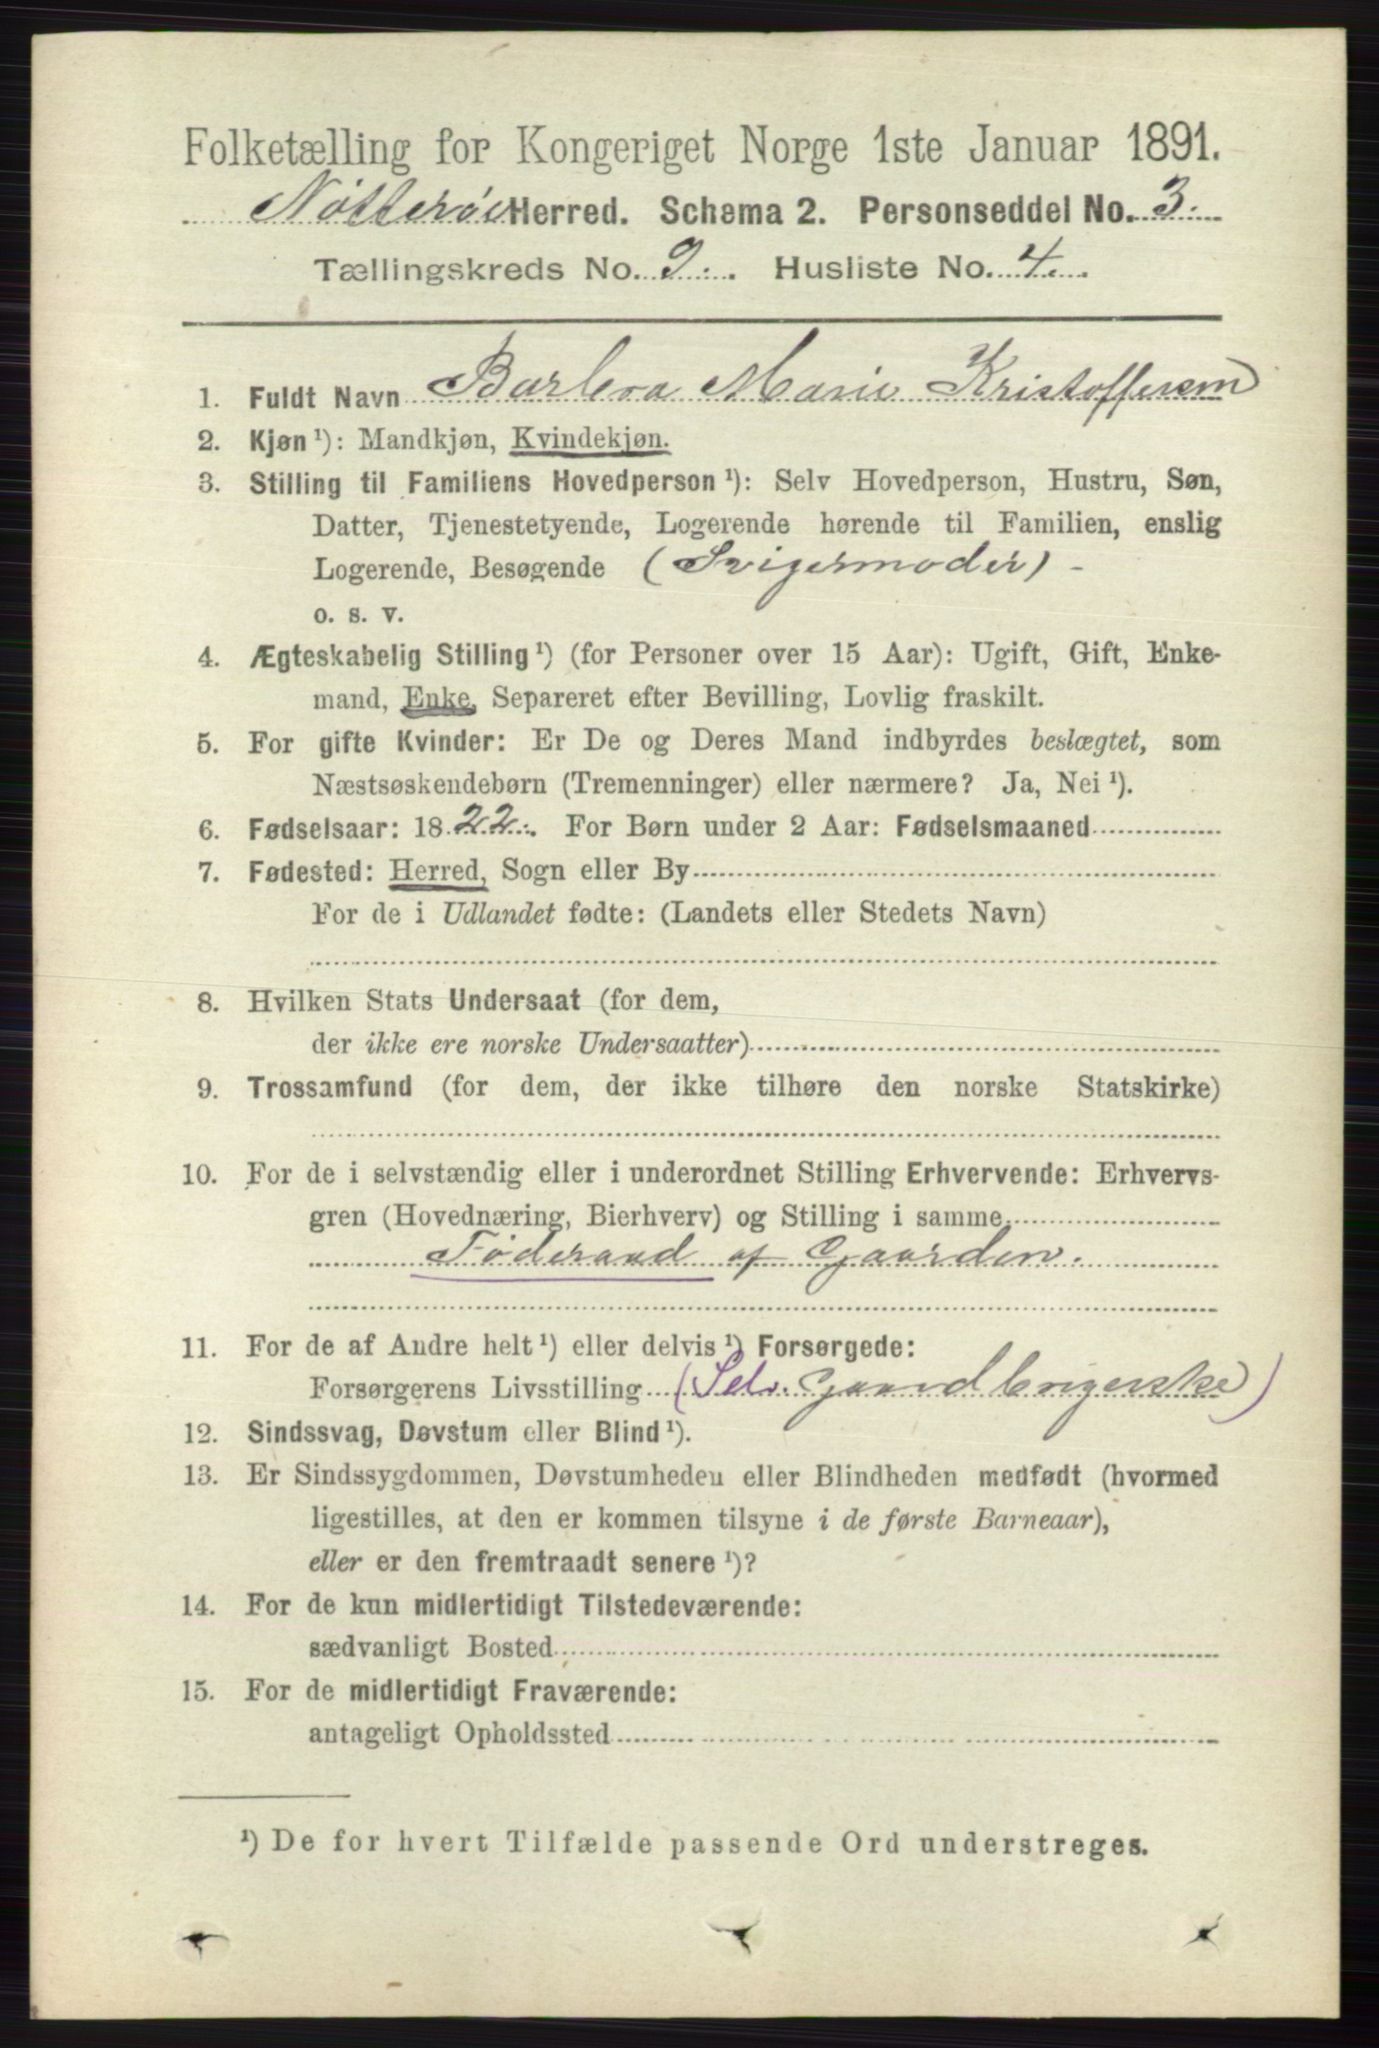 Folketælling for Kongeriget Norge 1ste Januar 1891.
Nötterö Herred. Schema 2. Personseddel No. 3.
Tællingskreds No. 9. Husliste No. 4.
1. Fuldt Navn Barbra Marie Kristoffersen
2. Kjøn ¹): Mandkjøn, Kvindekjøn.
3. Stilling til Familiens Hovedperson ¹): Selv Hovedperson, Hustru, Søn,
Datter, Tjenestetyende, Logerende hørende til Familien, enslig
Logerende, Besøgende (Svigermoder) -
o. s. v.
4. Ægteskabelig Stilling ¹) (for Personer over 15 Aar): Ugift, Gift, Enke-
mand, Enke, Separeret efter Bevilling, Lovlig fraskilt.
5. For gifte Kvinder: Er De og Deres Mand indbyrdes beslægtet, som
Næstsøskendebørn (Tremenninger) eller nærmere? Ja, Nei ¹).
6. Fødselsaar: 1822. For Børn under 2 Aar: Fødselsmaaned
7. Fødested: Herred, Sogn eller By
For de i Udlandet fødte: (Landets eller Stedets Navn)
8. Hvilken Stats Undersaat (for dem,
der ikke ere norske Undersaatter)
9. Trossamfund (for dem, der ikke tilhøre den norske Statskirke)
10. For de i selvstændig eller i underordnet Stilling Erhvervende: Erhvervs-
gren (Hovednæring, Bierhverv) og Stilling i samme.
Föderaad af Gaarden.
11. For de af Andre helt ¹) eller delvis ¹) Forsørgede:
Forsørgerens Livsstilling (Selv. Gaardbrugerske)
12. Sindssvag, Døvstum eller Blind ¹).
13. Er Sindssygdommen, Døvstumheden eller Blindheden medfødt (hvormed
ligestilles, at den er kommen tilsyne i de første Barneaar),
eller er den fremtraadt senere ¹)?
14. For de kun midlertidigt Tilstedeværende:
sædvanligt Bosted
15. For de midlertidigt Fraværende:
antageligt Opholdssted
¹) De for hvert Tilfælde passende Ord understreges.